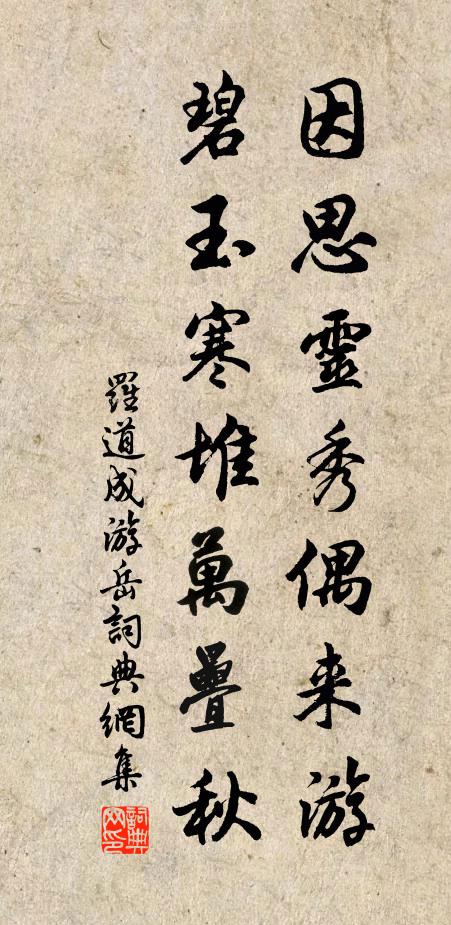 因思靈秀偶来游
碧玉寒堆萬疊秋
羅道成游岳詞典網集
詞典网印